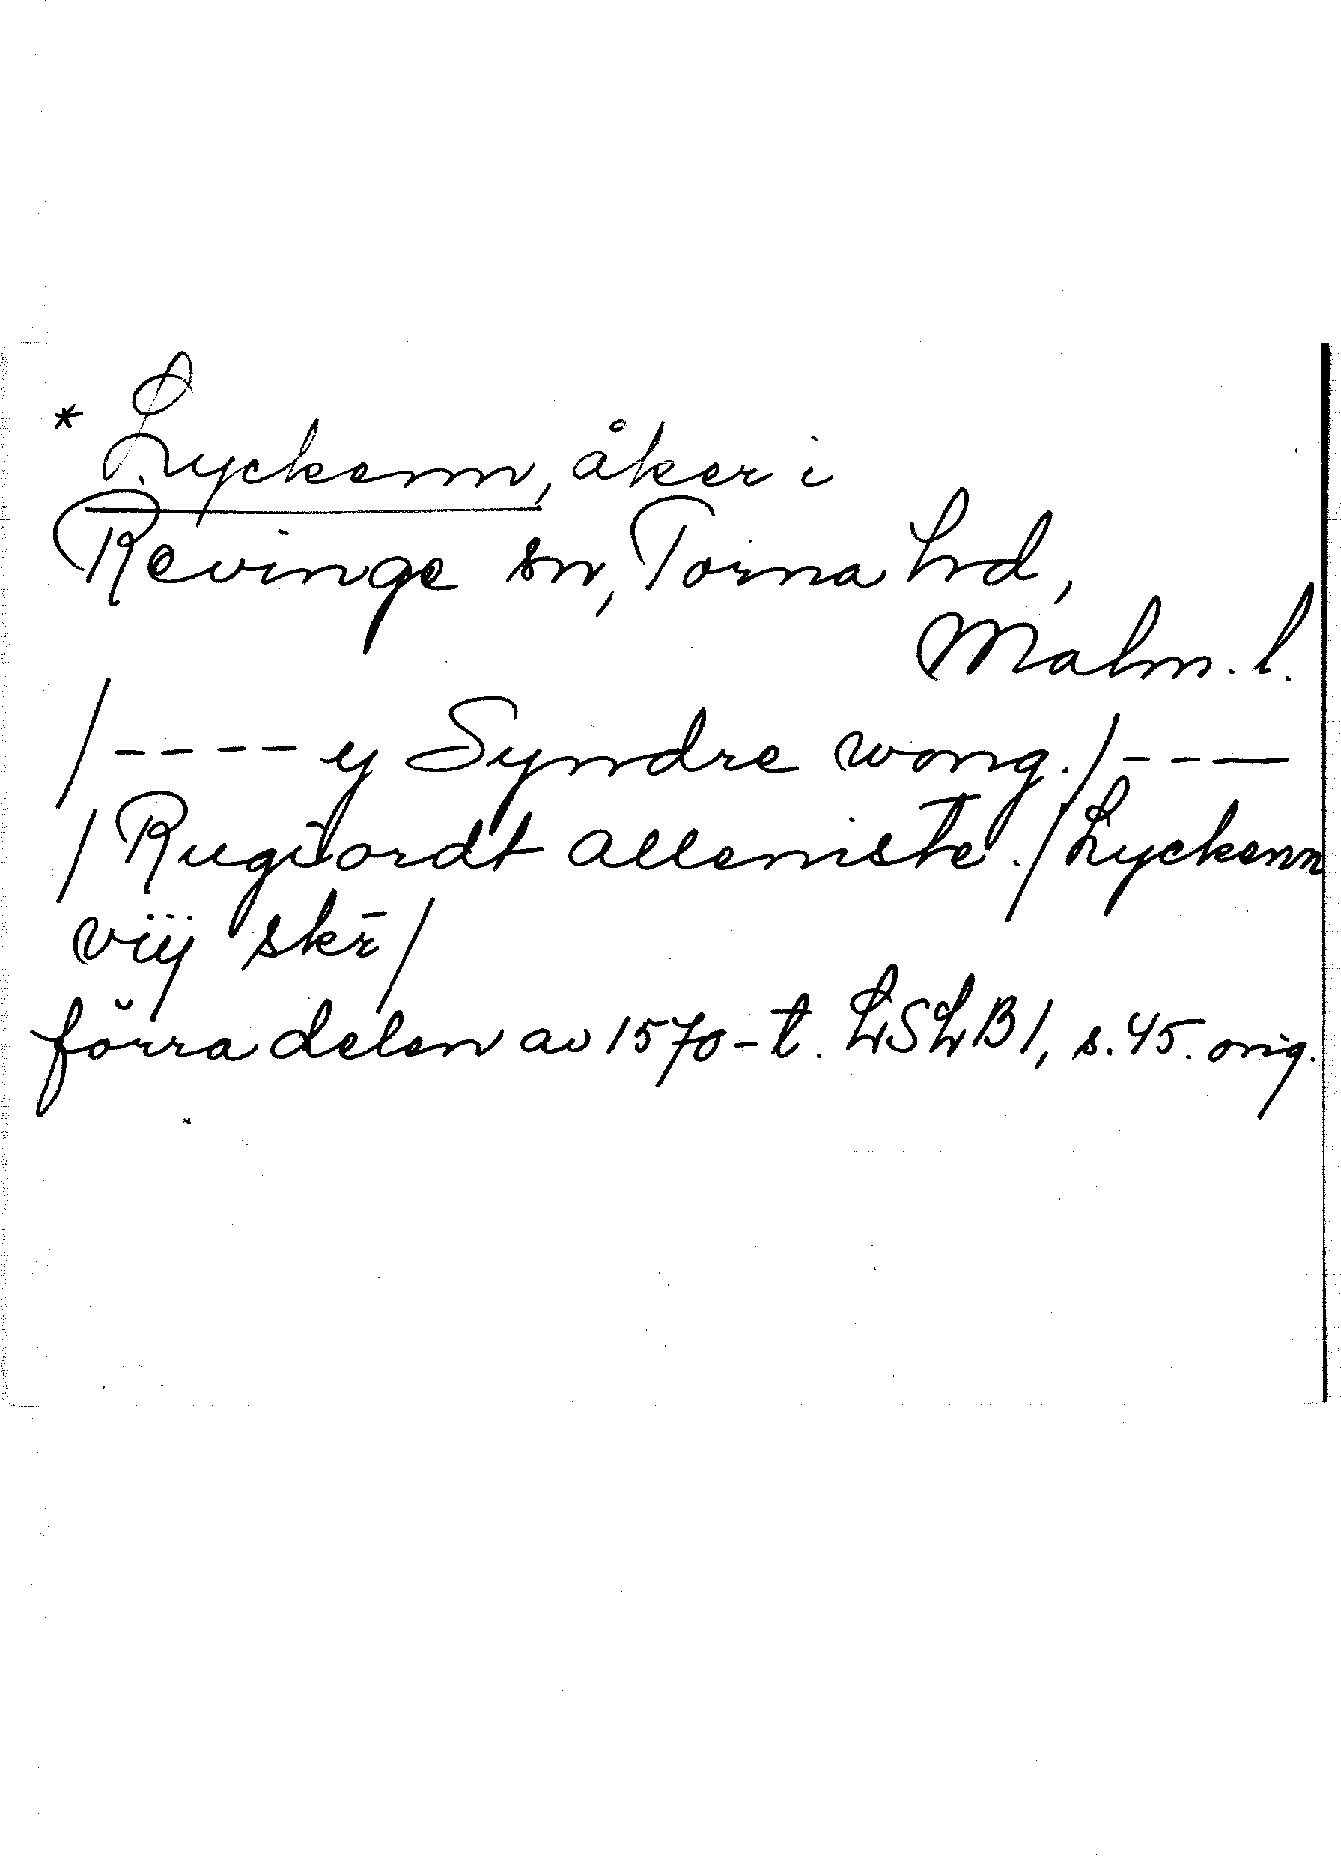 * Lyckenn, åker i
Revinge sn, Torna hrd,
Malm. l.
/---- y Syndre wong./---
/Rugiordt alleniste./Lyckenn
viij skr̄/
förra delen av 1570-t. LSLB1, s.45. orig.